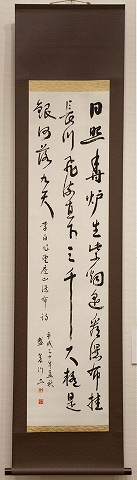 日照香炉生紫烟遥看瀑布挂
長川飛流直下三千尺疑是
銀河落九天 李白 望廬山瀑布 詩
平成 十年 秋